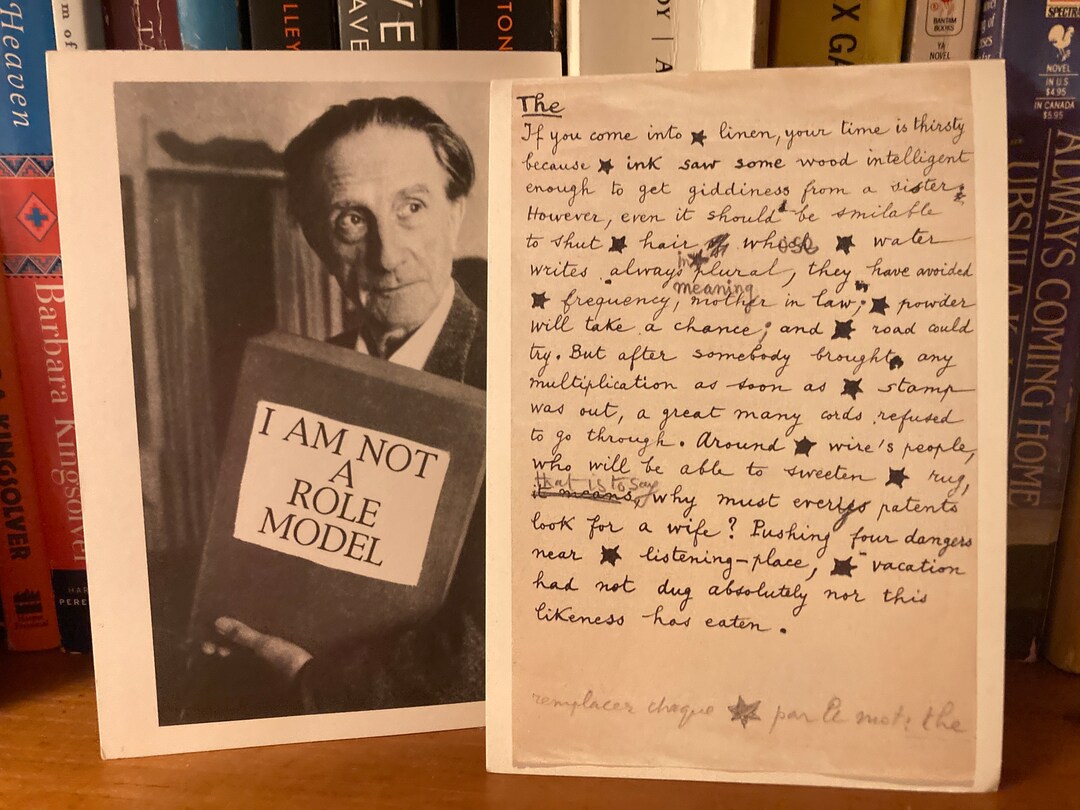 Heaven
m of
TA
LLEY
AVE
VE
TON
DY | A
X GA
BANTAM
BOOKS
YA
NOVEL
SPECTR
NOVEL
IN U.S
$4.95
IN CANADA
$5.95
ALWAYS COMING HOME
URSULA K.
Barbara Kingsolver
KINGSOLVER
HAR
PERE
I AM NOT
A
ROLE
MODEL
The
If you come into ★ linen, your time is thirsty
because ★ ink saw some wood intelligent
enough to get giddiness from a sister.
However, even it should be smilable
to shut ★ hair, whose ★ water
writes always in ★ plural, they have avoided
meaning
★ frequency, mother in law; ★ powder
will take a chance; and ★ road could
try. But after somebody brought any
multiplication as soon as ★ stamp
was out, a great many cords refused
to go through. Around ★ wire's people,
who will be able to sweeten ★ rug,
that is to say
it means, why must every patents
look for a wife? Pushing four dangers
near ★ listening-place, ★ vacation
had not dug absolutely nor this
likeness has eaten.
remplacer chaque ★ par le mot: the